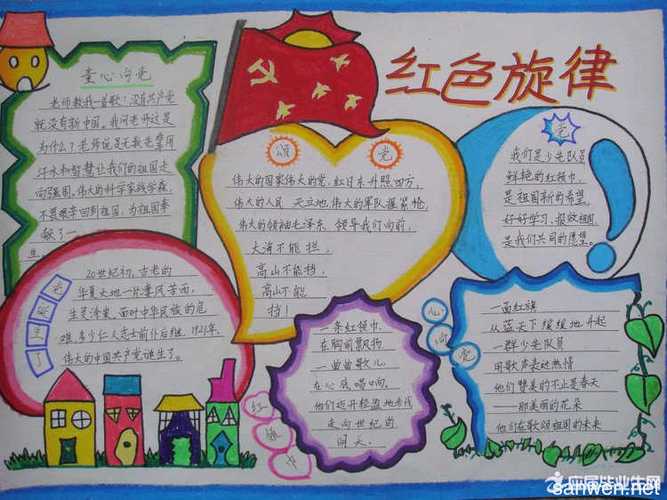 红色旋律
童心向党
老师教我一首歌：没有共产党
就没有新中国。我问老师这是
为什么？老师说是无数先辈用
汗水和智慧让我们的祖国走
向强国。伟大的科学家钱学森，
不畏艰辛回到祖国，为祖国奉
献了一
生
颂党
伟大的国家伟大的党，红日东升照四方，
伟大的人民天立地，伟大的军队握紧枪，
伟大的领袖毛泽东，领导我们向前，
大海不能拦，
高山不能挡，
高山不能
挡！
党
我们是少先队员
鲜艳的红领巾，
是祖国新的希望。
好好学习，报效祖国
是我们共同的愿望。
党诞生了
20世纪初，古老的
华夏大地一片凄风苦雨，
生灵涂炭，面对中华民族的危
难，多少仁人志士前仆后继，1921年，
伟大的中国共产党诞生了。
红领巾
一条红领巾，
在胸前飘扬
一曲曲歌儿
在心底唱响
他们迈开轻盈地步伐
走向世纪的
明天。
心向党
一面红旗
从蓝天下缓缓地升起
一群少先队员
用歌声表达热情
他们赞美的不止是春天
——那美丽的花朵
他们在歌颂祖国的未来
应届毕业生网
sanwen.net